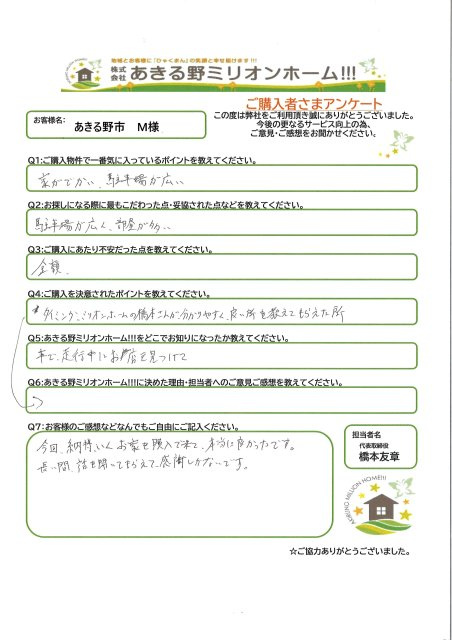 地域とお客様に「ひゃくまん」の笑顔と幸せ届けます!!!
株式会社 あきる野ミリオンホーム!!!
ご購入者さまアンケート
この度は弊社をご利用頂き誠にありがとうございました。
今後の更なるサービス向上の為、
ご意見・ご感想をお聞かせください。
お客様名: あきる野市 M様
Q1:ご購入物件で一番気に入っているポイントを教えてください。
家がでかい、駐車場が広い
Q2:お探しになる際に最もこだわった点・妥協された点などを教えてください。
駐車場が広く、部屋が多い
Q3:ご購入にあたり不安だった点を教えてください。
金額、
Q4:ご購入を決意されたポイントを教えてください。
*タイミング、ミリオンホームの橋本さんが分かりやすく、良い所を教えてもらえた所
Q5:あきる野ミリオンホーム!!!をどこでお知りになったか教えてください。
車で、走行中にお店を見つけて
Q6:あきる野ミリオンホーム!!!に決めた理由・担当者へのご意見ご感想を教えてください。
Q7:お客様のご感想などなんでもご自由にご記入ください。
今回、納得いくお家を購入できて、本当に良かったです。
長い間、話を聞いてもらえて、感謝しかないです。
担当者名
代表取締役
橋本友章
AKIRUNO MILLION HOME!!!
☆ご協力ありがとうございました。